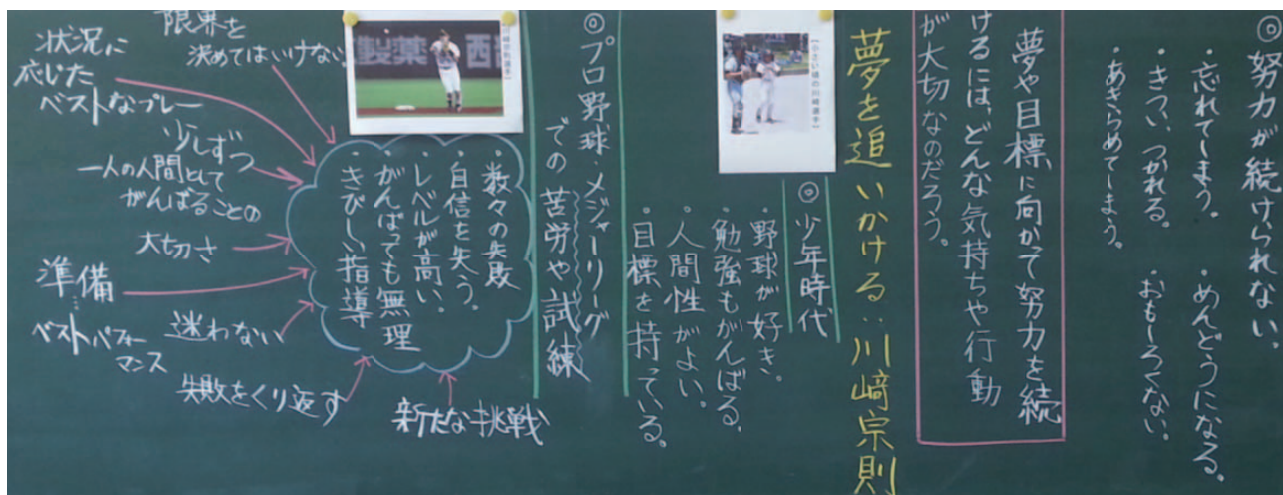 ◎努力が続けられない。
・忘れてしまう。
・めんどうになる。
・きつい、つかれる。
・おもしろくない。
・あきらめてしまう。
夢や目標に向かって努力を続
けるには、どんな気持ちや行動
が大切なのだろう。
夢を追いかける：川﨑宗則
【小さい頃の川﨑選手】
◎少年時代
・野球が好き。
・勉強もがんばる。
・人間性がよい。
・目標を持っている。
◎プロ野球・メジャーリーグ
での苦労や試練
【川﨑宗則選手】
製薬
西
・数々の失敗
・自信を失う。
・レベルが高い。
・がんばっても無理
・きびしい指導
限界を
決めてはいけない
状況に
応じた
ベストなプレー
少しずつ
一人の人間として
がんばることの
大切さ
準備
ベストパフォー
マンス
迷わない
失敗をくり返す
新たな挑戦